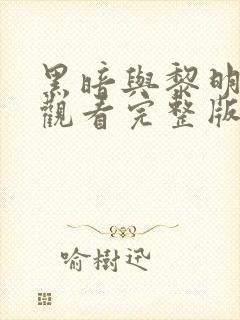 黑暗與黎明
觀看完整版
喻樹迅